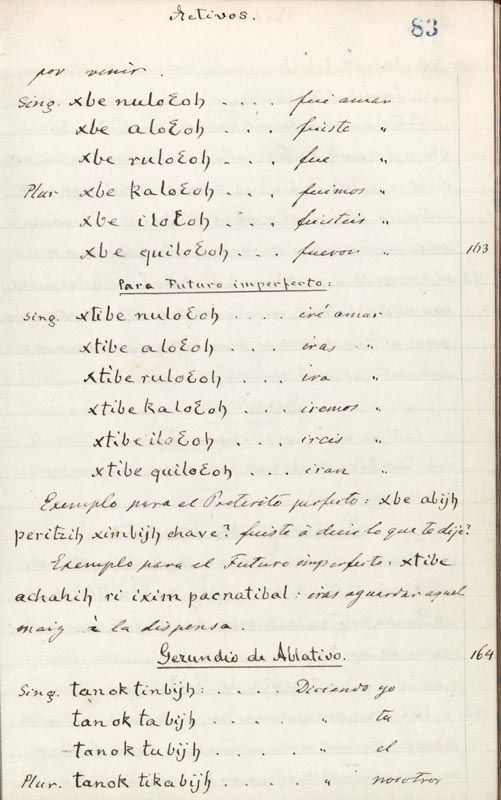 Activos.
83
por venir.
Sing. xbe nuloƐoh .... fui amar
xbe aloƐoh .... fuiste "
xbe ruloƐoh .... fue "
Plur xbe kaloƐoh .... fuimos "
xbe iloƐoh .... fuisteis "
xbe quiloƐoh .... fueron " 163
Para Futuro imperfecto:
Sing. xtibe nuloƐoh ... iré amar
xtibe aloƐoh ... iras "
xtibe ruloƐoh ... ira "
xtibe kaloƐoh ... iremos "
xtibe iloƐoh ... ireis "
xtibe quiloƐoh ... iran "
Exemplo para el Preterito perfecto: xbe abijh
peritzih ximbijh chave? fuiste á decir lo que te dije?
Exemplo para el Futuro imperfecto: xtibe
achahih ri ixim pacnatibal: iras aguardar aquel
maiz á la dispensa.
Gerundio de Ablativo. 164
Sing. tanok tinbijh: .... Diciendo yo
tanok tabijh .... " tu
tanok tubijh .... " el
Plur. tanok tikabijh .... " nosotros